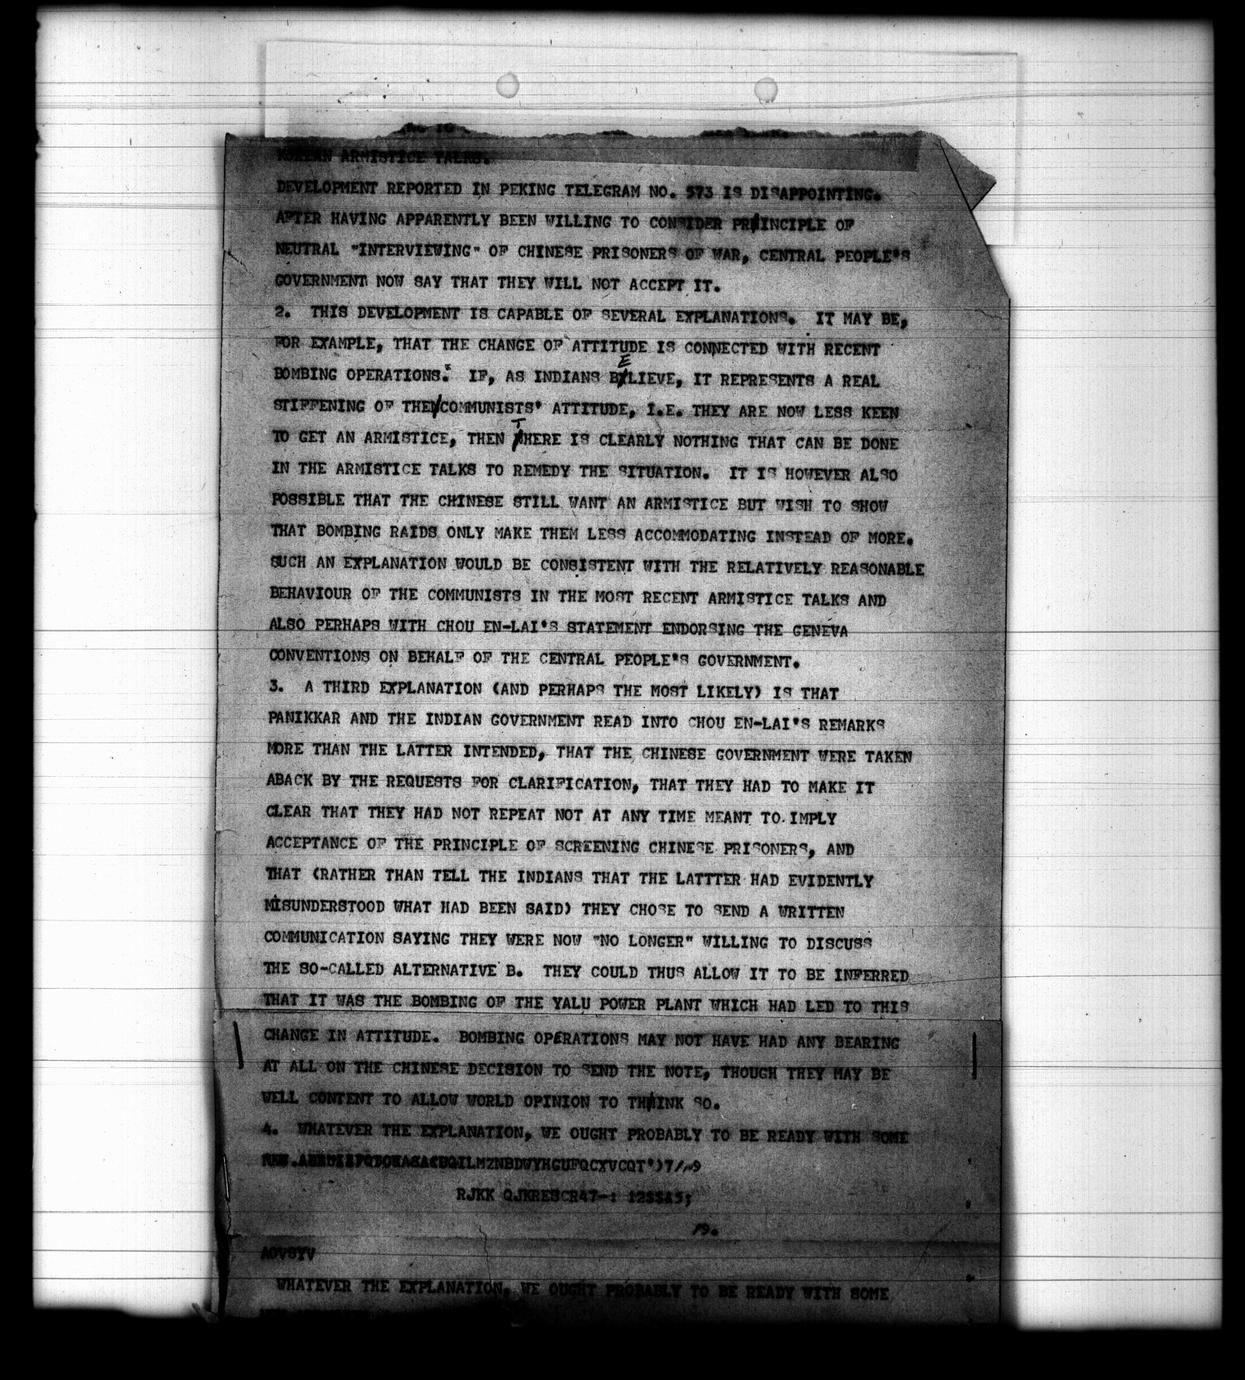 KOREAN ARMISTICE TALKS.
DEVELOPMENT REPORTED IN PEKING TELEGRAM NO. 573 IS DISAPPOINTING.
AFTER HAVING APPARENTLY BEEN WILLING TO CONSIDER PRINCIPLE OF
NEUTRAL "INTERVIEWING" OF CHINESE PRISONERS OF WAR, CENTRAL PEOPLE'S
GOVERNMENT NOW SAY THAT THEY WILL NOT ACCEPT IT.
2. THIS DEVELOPMENT IS CAPABLE OF SEVERAL EXPLANATIONS. IT MAY BE,
FOR EXAMPLE, THAT THE CHANGE OF ATTITUDE IS CONNECTED WITH RECENT
BOMBING OPERATIONS. IF, AS INDIANS BELIEVE, IT REPRESENTS A REAL
STIFFENING OF THE COMMUNISTS' ATTITUDE, I.E. THEY ARE NOW LESS KEEN
TO GET AN ARMISTICE, THEN THERE IS CLEARLY NOTHING THAT CAN BE DONE
IN THE ARMISTICE TALKS TO REMEDY THE SITUATION. IT IS HOWEVER ALSO
POSSIBLE THAT THE CHINESE STILL WANT AN ARMISTICE BUT WISH TO SHOW
THAT BOMBING RAIDS ONLY MAKE THEM LESS ACCOMMODATING INSTEAD OF MORE.
SUCH AN EXPLANATION WOULD BE CONSISTENT WITH THE RELATIVELY REASONABLE
BEHAVIOUR OF THE COMMUNISTS IN THE MOST RECENT ARMISTICE TALKS AND
ALSO PERHAPS WITH CHOU EN-LAI'S STATEMENT ENDORSING THE GENEVA
CONVENTIONS ON BEHALF OF THE CENTRAL PEOPLE'S GOVERNMENT.
3. A THIRD EXPLANATION (AND PERHAPS THE MOST LIKELY) IS THAT
PANIKKAR AND THE INDIAN GOVERNMENT READ INTO CHOU EN-LAI'S REMARKS
MORE THAN THE LATTER INTENDED, THAT THE CHINESE GOVERNMENT WERE TAKEN
ABACK BY THE REQUESTS FOR CLARIFICATION, THAT THEY HAD TO MAKE IT
CLEAR THAT THEY HAD NOT REPEAT NOT AT ANY TIME MEANT TO IMPLY
ACCEPTANCE OF THE PRINCIPLE OF SCREENING CHINESE PRISONERS, AND
THAT (RATHER THAN TELL THE INDIANS THAT THE LATTTER HAD EVIDENTLY
MISUNDERSTOOD WHAT HAD BEEN SAID) THEY CHOSE TO SEND A WRITTEN
COMMUNICATION SAYING THEY WERE NOW "NO LONGER" WILLING TO DISCUSS
THE SO-CALLED ALTERNATIVE B. THEY COULD THUS ALLOW IT TO BE INFERRED
THAT IT WAS THE BOMBING OF THE YALU POWER PLANT WHICH HAD LED TO THIS
CHANGE IN ATTITUDE. BOMBING OPERATIONS MAY NOT HAVE HAD ANY BEARING
AT ALL ON THE CHINESE DECISION TO SEND THE NOTE, THOUGH THEY MAY BE
WELL CONTENT TO ALLOW WORLD OPINION TO THINK SO.
4. WHATEVER THE EXPLANATION, WE OUGHT PROBABLY TO BE READY WITH SOME
RJKK
19.
AOVSYV
WHATEVER THE EXPLANATION, WE OUGHT PROBABLY TO BE READY WITH SOME